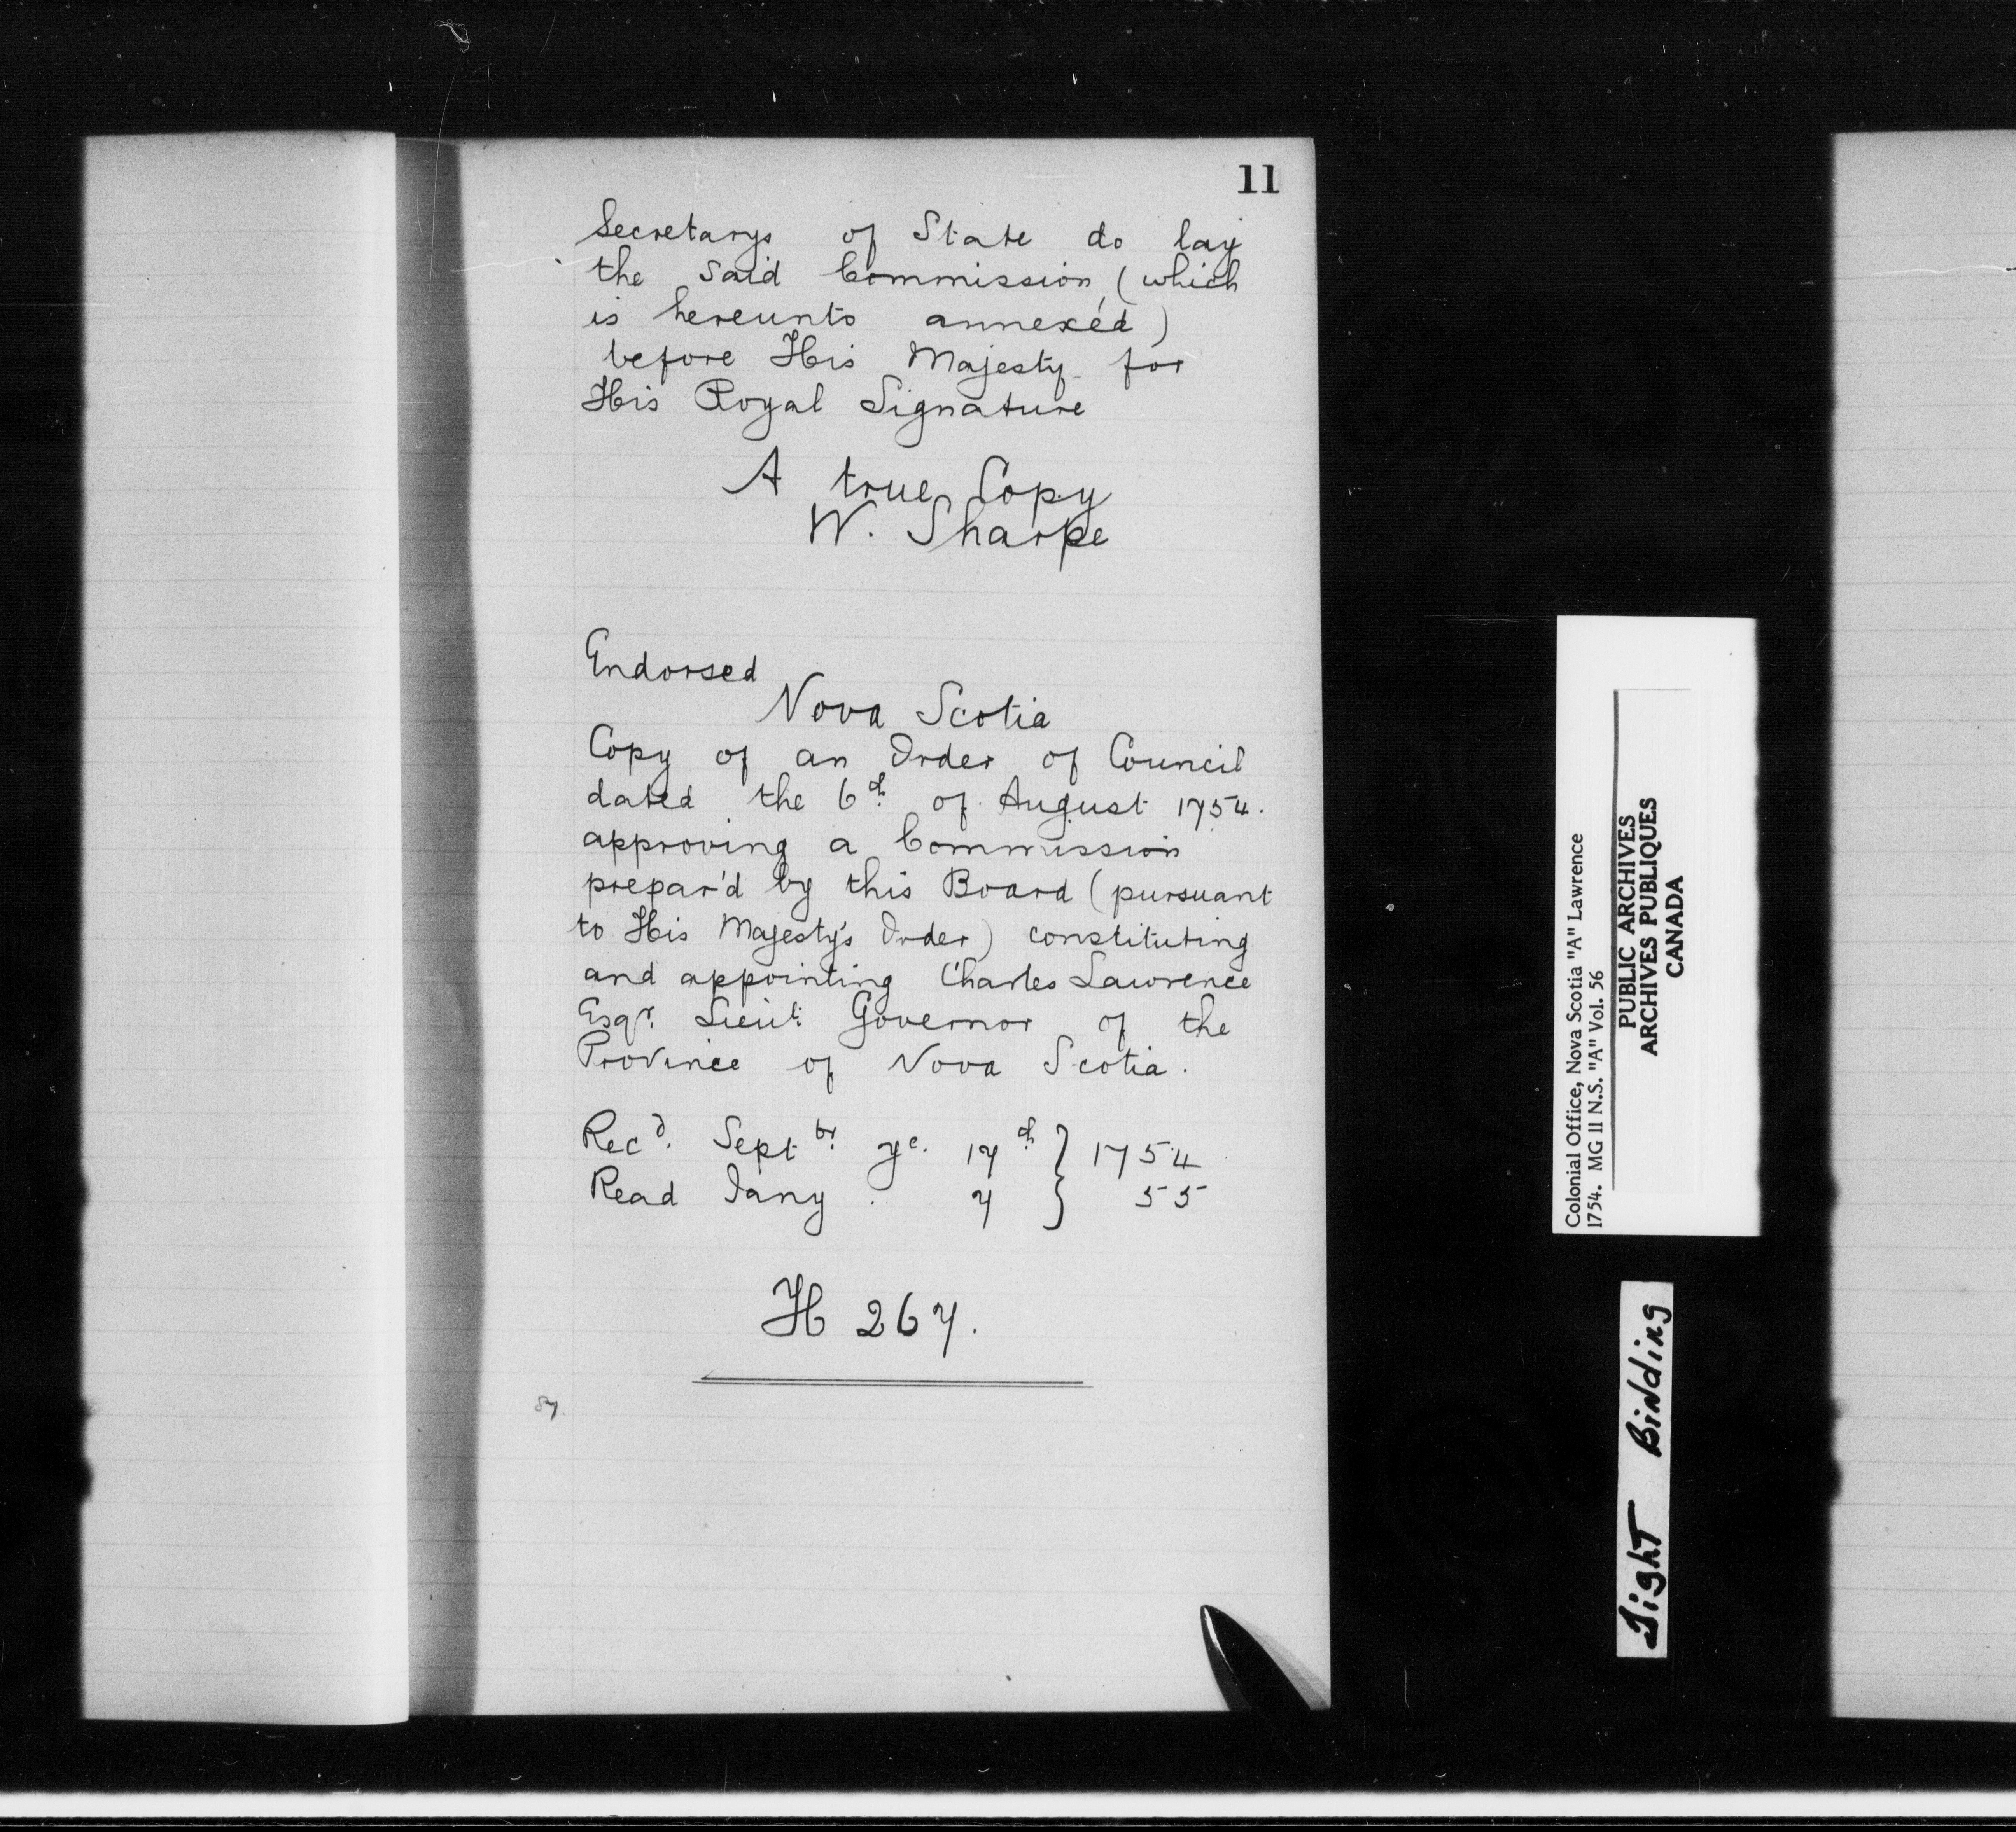 11
Secretarys of State do lay
the said Commission (which
is hereunto annexéd)
before His Majesty for
His Royal Signature
A true Copy
W. Sharpe
Endorsed
Nova Scotia
Copy of an Order of Council
dated the 6th of August 1754.
approving a Commission
prepar'd by this Board (pursuant
to His Majesty's Order) constituting
and appointing Charles Lawrence
Esqr. Lieut. Governor of the
Province of Nova Scotia.
Recd. Septbr. ye. 17th } 1754
Read Jany. 7 } 55
H 267.
87.
Colonial Office, Nova Scotia "A" Lawrence
1754. MG II N.S. "A" Vol. 56
PUBLIC ARCHIVES
ARCHIVES PUBLIQUES
CANADA
Tight Binding